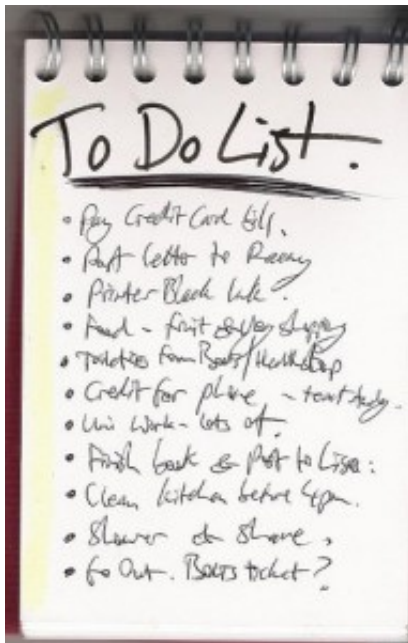 To Do List.
• Pay Credit Card bill.
• Post letter to
• Printer Black Ink.
• Food - fruit & veg shopping
• Toiletries from Boots/Healthshop
• Credit for phone - text
• Uni Work - lots of.
• Finish book & Post to Lisa.
• Clean kitchen before 4pm.
• Shower & Shave.
• Go Out. ticket?